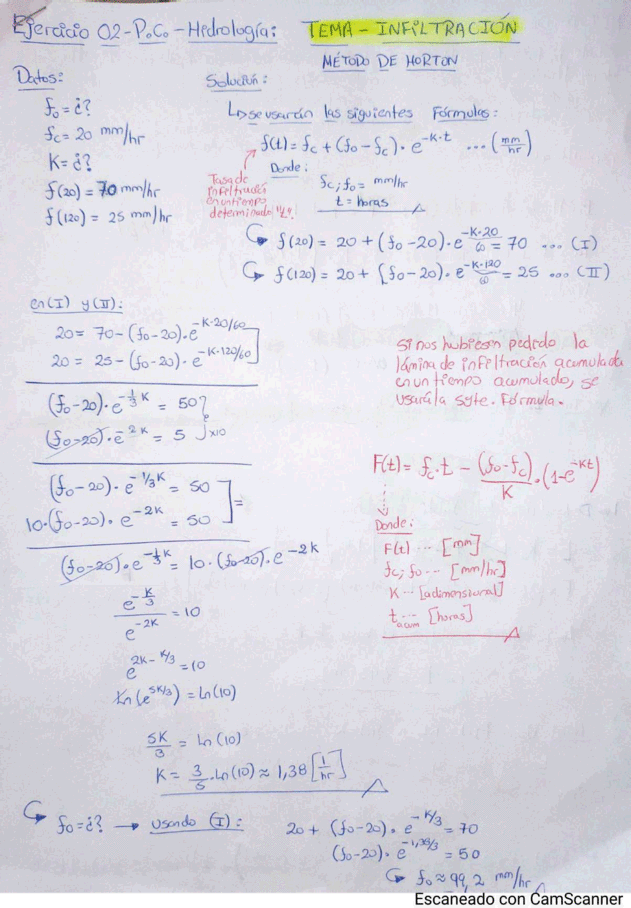 Ejercicio 02-P.C.-Hidrología: TEMA - INFILTRACIÓN
MÉTODO DE HORTON
Datos:
f₀ = ¿?
fc = 20 mm/hr
K = ¿?
f(20) = 70 mm/hr
f(120) = 25 mm/hr
Solución:
↳ se usarán las siguientes Fórmulas:
f(t) = fc + (f₀ - fc) · e^-K·t ... (mm/hr)
Tasa de infiltración en un tiempo determinado "t".
Donde:
fc; f₀ = mm/hr
t = horas
f(20) = 20 + (f₀ - 20) · e^(-K·20/60) = 70 ... (I)
f(120) = 20 + (f₀ - 20) · e^(-K·120/60) = 25 ... (II)
en (I) y (II):
20 = 70 - (f₀ - 20) · e^-K·20/60
20 = 25 - (f₀ - 20) · e^-K·120/60
(f₀ - 20) · e^-1/3 K = 50
(f₀ - 20) · e^-2K = 5 x10
(f₀ - 20) · e^-1/3K = 50
10 · (f₀ - 20) · e^-2K = 50
=
(f₀ - 20) · e^-1/3 K = 10 · (f₀ - 20) · e^-2K
e^-K/3 / e^-2K = 10
e^2K - K/3 = 10
Ln(e^5K/3) = Ln(10)
5K/3 = Ln(10)
K = 3/5 · Ln(10) ≈ 1,38 [1/hr]
Si nos hubiesen pedido la
lámina de infiltración acumulada
en un tiempo acumulado, se
usará la sgte. Fórmula.
F(t) = fc · t - (f₀ - fc)/K · (1 - e^-Kt)
Donde:
F(t) ... [mm]
fc; f₀ ... [mm/hr]
K ... [adimensional]
t acum ... [horas]
f₀ = ¿? → usando (I):
20 + (f₀ - 20) · e^-K/3 = 70
(f₀ - 20) · e^-1,38/3 = 50
f₀ ≈ 99,2 mm/hr
Escaneado con CamScanner